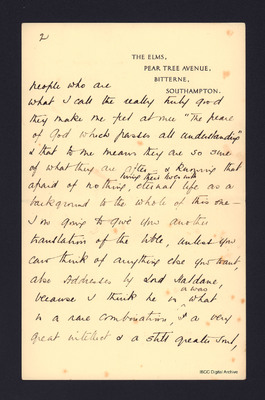 2
THE ELMS,
PEAR TREE AVENUE,
BITTERNE,
SOUTHAMPTON.
people who are
what I call the really truly good
they make me feel at once "The peace
of God which passes all understanding"
& that to me means they are so sure
of what they are after - & knowing that
living their lives with
afraid of nothing, eternal life as a
background to the whole of this one -
I am going to give you another
translation of the bible, unless you
can think of anything else you want,
also addresses by Lord Haldane,
or was
because I think he is what
is a rare combination, a very
great intellect & a still greater soul,
IBCC Digital Archive